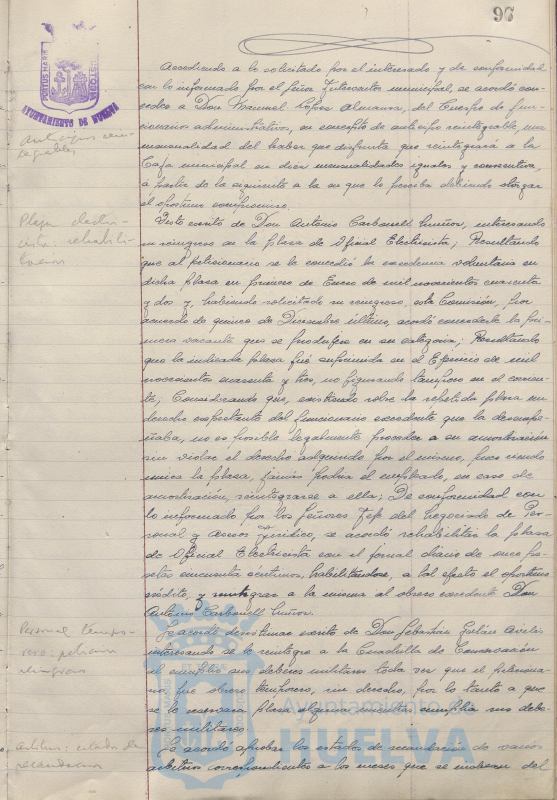 96
PORTUS MARIS ET TERRAE CUSTODIA
AYUNTAMIENTO DE HUELVA
Accediendo a lo solicitado por el interesado y de conformidad
con lo informado por el Señor Interventor municipal, se acordó con-
ceder a Don Manuel López Almansa, del Cuerpo de fun-
cionarios administrativos, en concepto de anticipo reintegrable, una
mensualidad del haber que disfruta que reintegrará a la
Caja municipal en diez mensualidades iguales y consecutivas,
a partir de la siguiente a la en que lo perciba debiendo otorgar
el oportuno compromiso.
Anticipos rein-
tegrables
Visto escrito de Don Antonio Carbonell Muñoz, interesando
su reingreso en la plaza de Oficial Electricista; Resultando
que al peticionario se le concedió la excedencia voluntaria en
dicha plaza en primero de Enero de mil novecientos cuarenta
y dos y, habiendo solicitado su reingreso, esta Comisión, por
acuerdo de quince de Diciembre último, acordó concederle la pri-
mera vacante que se produjera en su categoría; Resultando
que la indicada plaza fué suprimida en el Ejercicio de mil
novecientos cuarenta y tres, no figurando tampoco en el corrien-
te; Considerando que, existiendo sobre la repetida plaza un
derecho expectante del funcionario excedente que la desempe-
ñaba, no es posible legalmente proceder a su amortización
sin violar el derecho adquirido por el mismo, pues siendo
única la plaza, jamás podrá el empleado, en caso de
amortización, reintegrarse a ella; De conformidad con
lo informado por los Señores Jefe del Negociado de Per-
sonal y Asesor Jurídico, se acordó rehabilitar la plaza
de Oficial Electricista con el jornal diario de once pe-
setas cincuenta céntimos, habilitándose, a tal efecto el oportuno
crédito, y reintegrar a la misma al obrero excedente Don
Antonio Carbonell Muñoz.
Plaza electri-
cista: rehabili-
tación
Se acordó desestimar escrito de Don Sebastián
interesando se le reintegre a la Cuadrilla de Conservación
al cumplir sus deberes militares toda vez que el peticiona-
rio, fué obrero temporero, sin derecho, por lo tanto a que
se le reservara plaza alguna mientras cumplía sus debe-
res militares.
Personal tempo-
rero: petición
reingreso
Se acordó aprobar los estados de recaudación de varios
arbitrios correspondientes a los meses que se indican del
Arbitrios: estados de
recaudación
Ayuntamiento
HUELVA